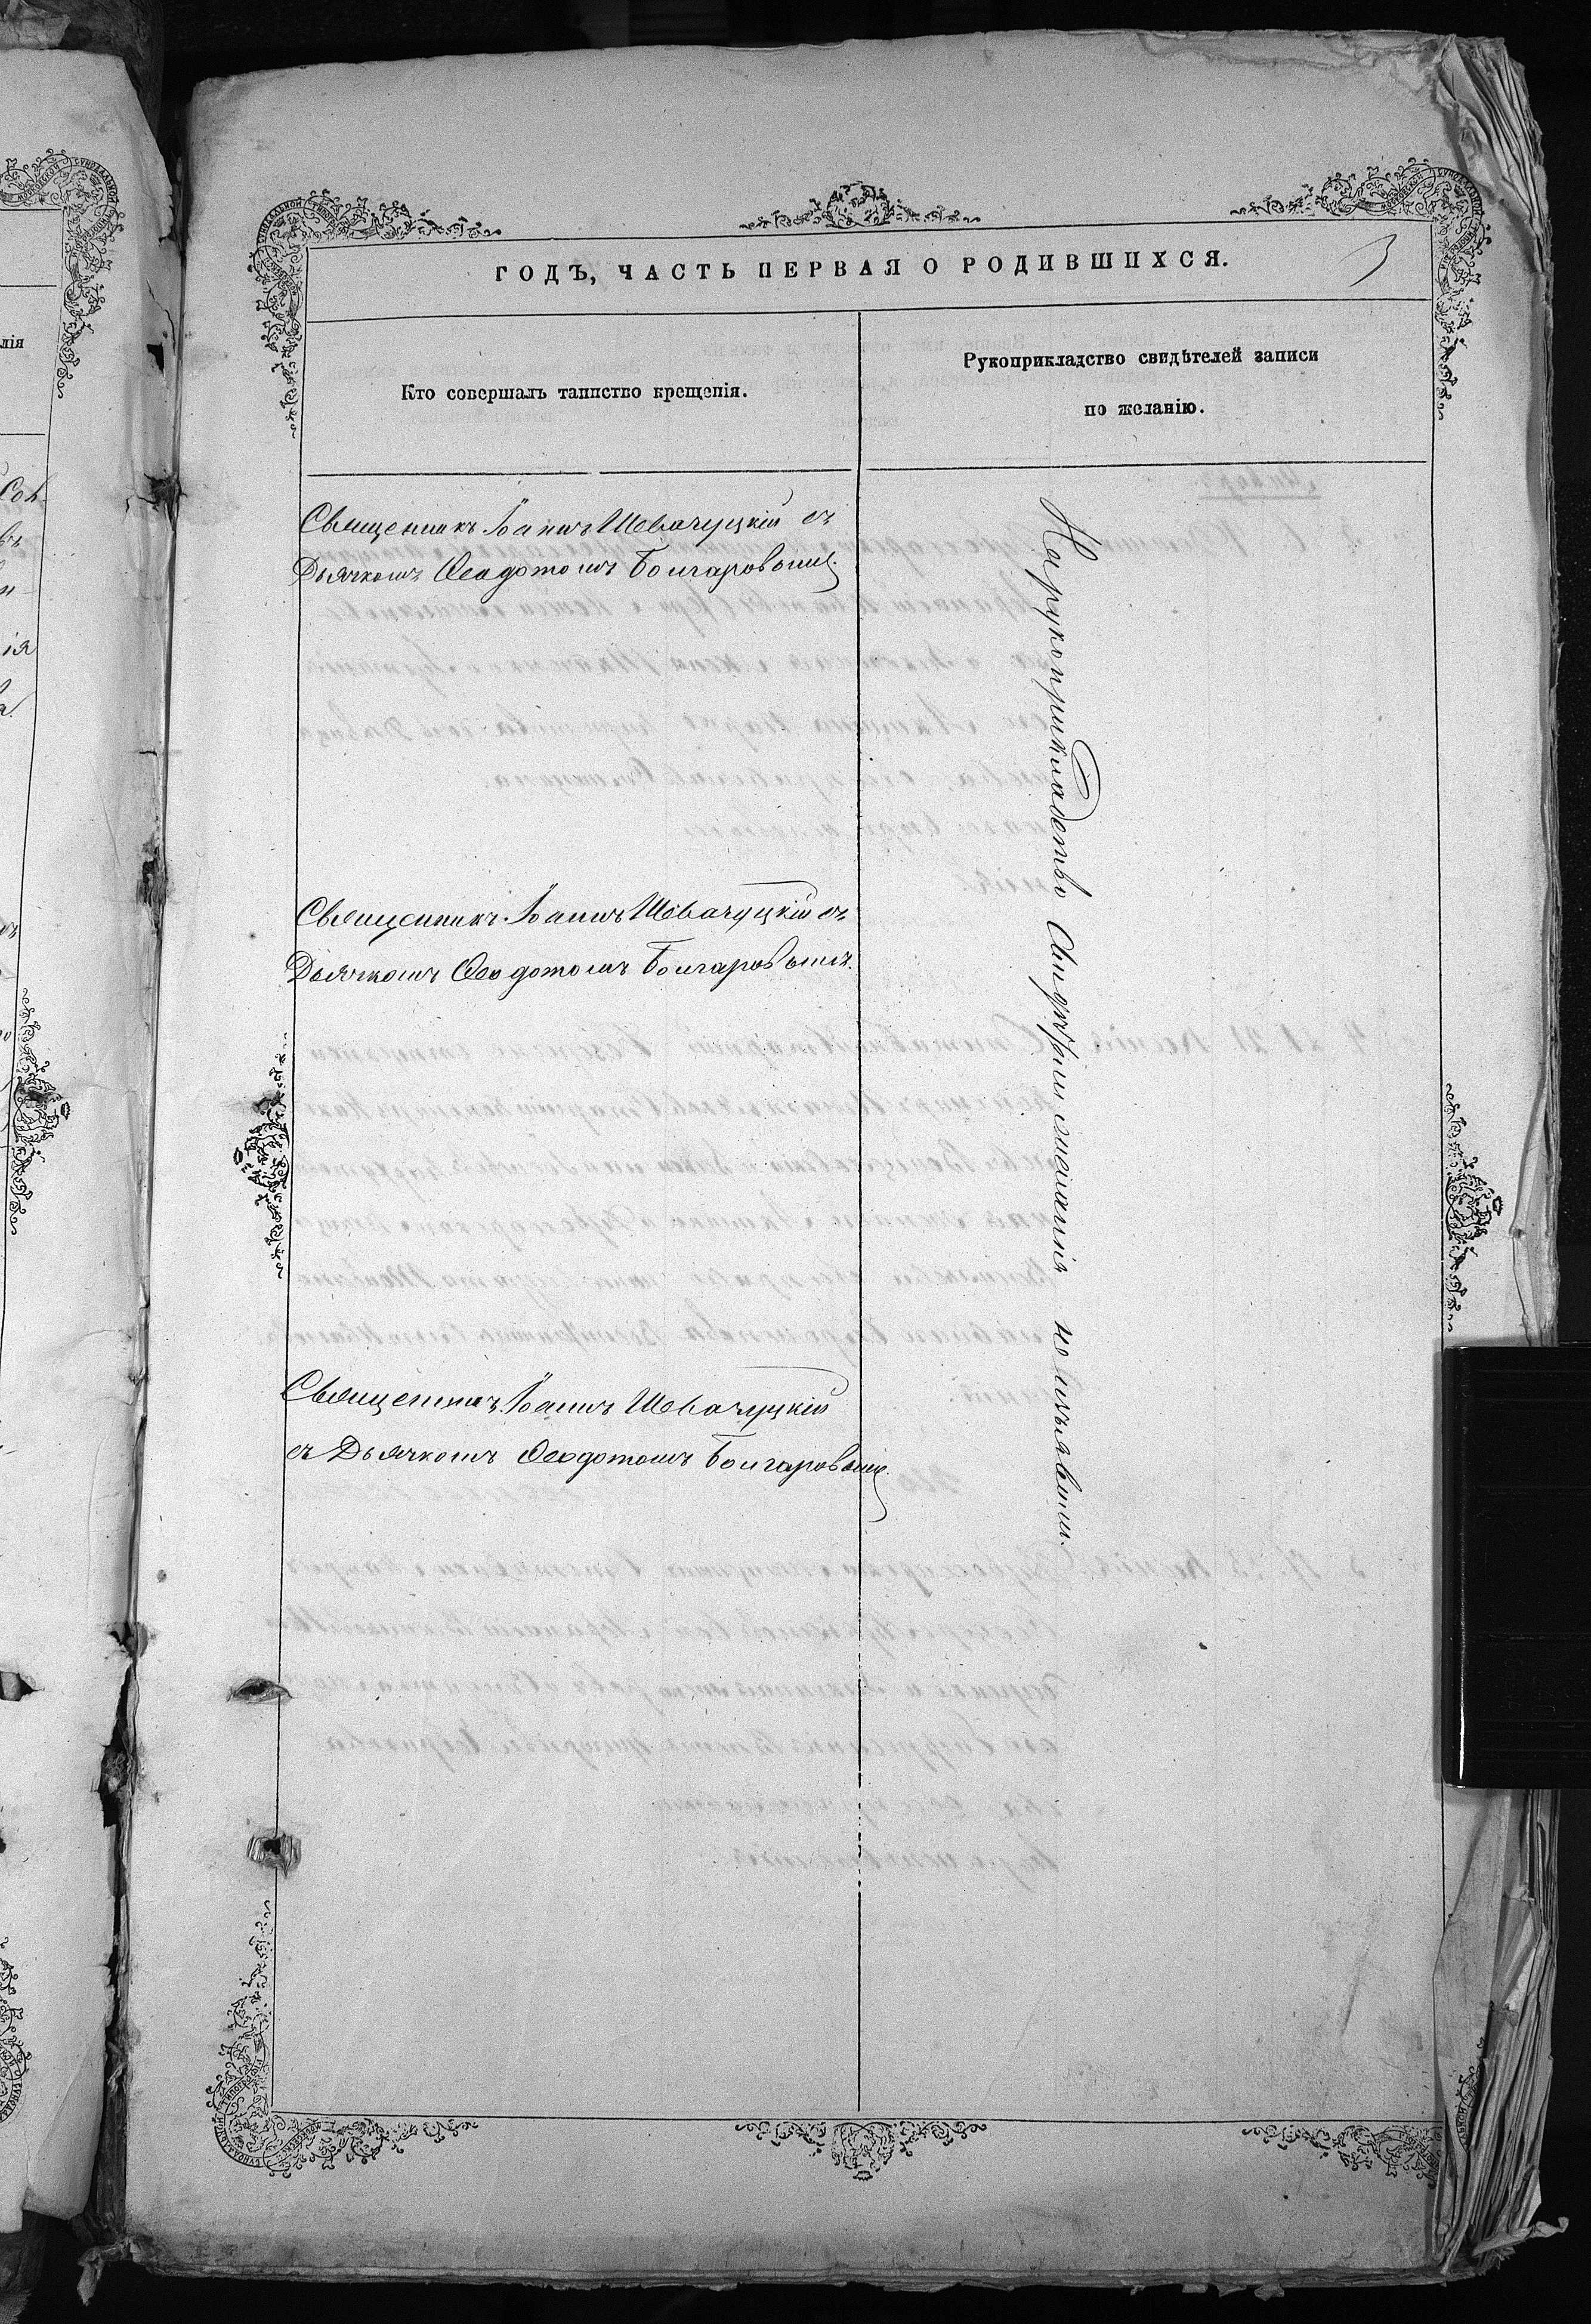 ГОДЪ, ЧАСТЬ ПЕРВАЯ О РОДИВШИХСЯ.
3
Кто совершалъ таинство крещенія.
Рукоприкладство свидѣтелей записи
по желанію.
Священникъ Іоаннъ Шевачуцкій съ
Дьячкомъ Ѳеодотомъ Болгаровымъ.
Священникъ Іоаннъ Шевачуцкій съ
Дьячкомъ Ѳеодотомъ Болгаровымъ.
Священникъ Іоаннъ Шевачуцкій
съ Дьячкомъ Ѳеодотомъ Болгаровымъ.
На рукоприкладство свидѣтели желанія не изъявили.